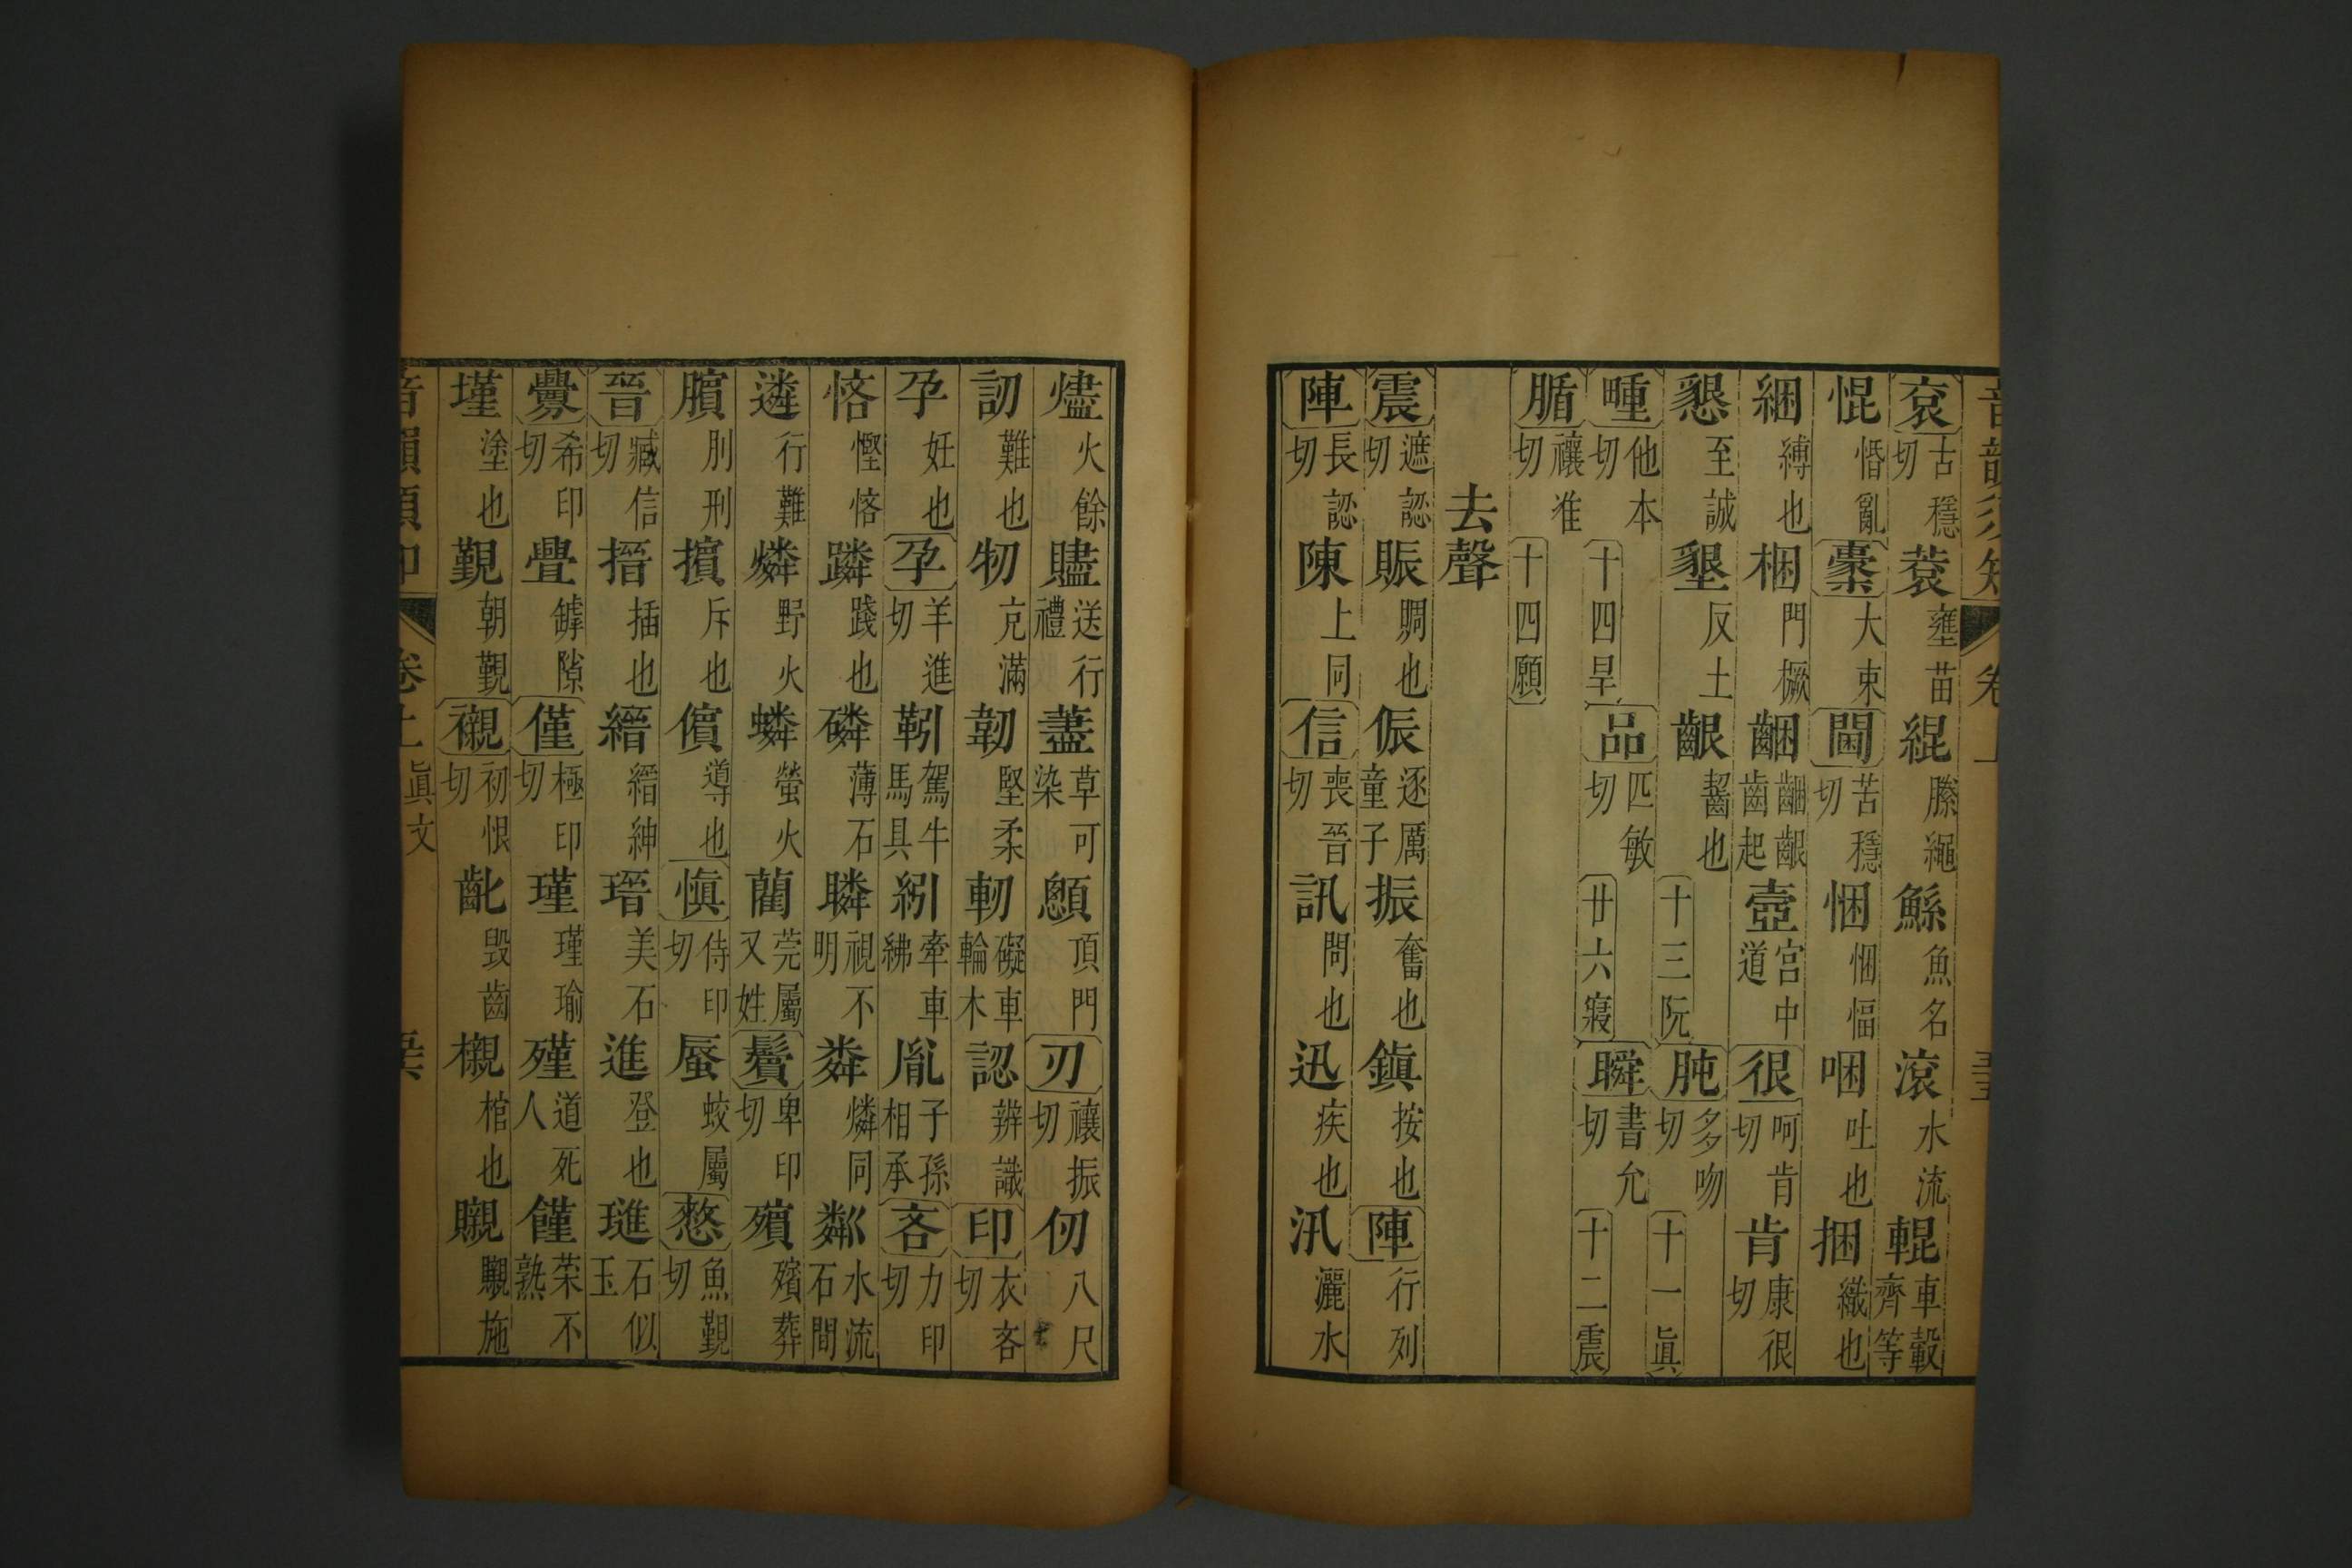 音韻須知 卷上
袞古穩切蓘壅苗緄縢繩鯀魚名滾水流輥車轂齊等
惃惛亂橐大束閫苦穩切悃悃愊啒吐也捆織也
綑縛也梱門橛齫齫齦齒起壼宮中道很呵肯切肯康很切
懇至誠墾反土齦齧也十三阮盹多吻切十一眞
疃他本切十四旱品匹敏切廿六寢瞬書允切十二震
腯禳准切十四願
去聲
震遮認切賑賙也侲逐厲童子振奮也鎮按也陣行列
陣長認切陳上同信喪晉切訊問也迅疾也汛灑水
燼火餘贐送行禮藎草可染顖頂門刃禳振切仞八尺
訒難也牣充滿韌堅柔軔礙車輪木認辨識印衣吝切
孕妊也孕羊進切靷駕牛馬具紖牽車紼胤子孫相承吝力印切
悋慳悋蹸踐也磷薄石瞵視不明粦燐同粼水流石間
遴行難燐野火蟒螢火藺莞屬又姓鬢卑印切殯殯葬
臏刖刑擯斥也儐導也愼侍印切蜃蛟屬憖魚覲切
晉臧信切搢插也縉縉紳瑨美石進登也璡石似玉
釁希印切舋罅隙僅極印切瑾瑾瑜殣道死人饉荣不熟
墐塗也覲朝覲襯初恨切齔毀齒櫬棺也嚫嚫施
卷上 眞文